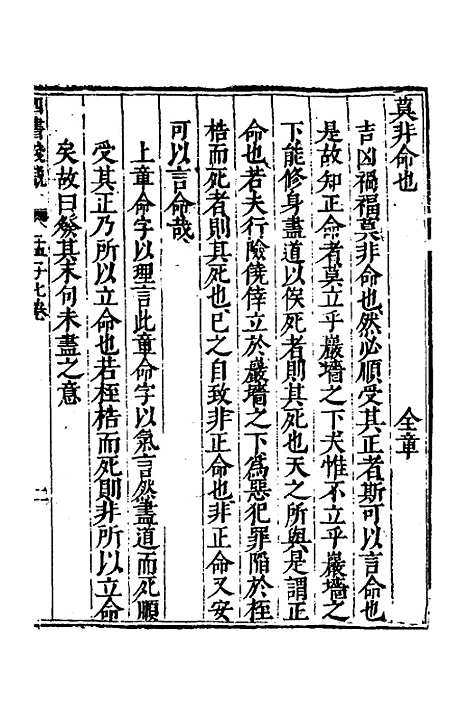 莫非命也　全章
吉凶禍福莫非命也然必順受其正者斯可以言命也
是故知正命者莫立乎巖墻之下夫惟不立乎巖墻之
下能修身盡道以俟死者則其死也天之所與是謂正
命也若夫行險僥倖立於巖墻之下為惡犯罪陷於桎
梏而死者則其死也已之自致非正命也非正命又安
可以言命哉
上章命字以理言此章命字以氣言然盡道而死順
受其正乃所以立命也若桎梏而死則非所以立命
矣故曰發其末句未盡之意
四書 孟子七卷 二